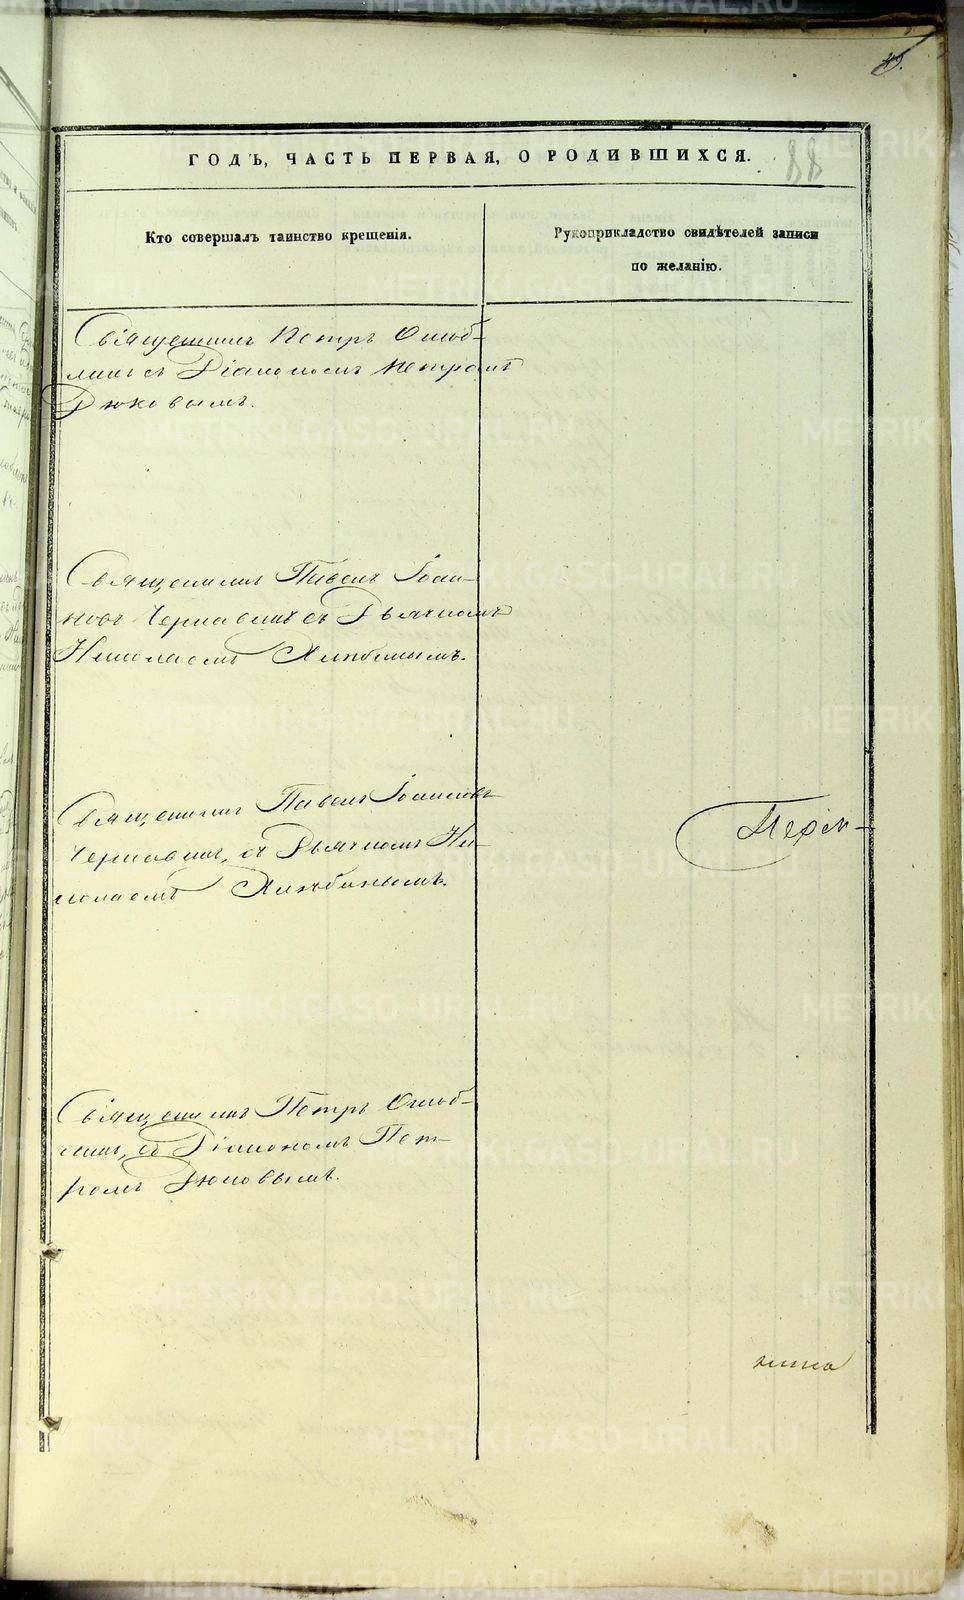 88
ГОДЪ, ЧАСТЬ ПЕРВАЯ, О РОДИВШИХСЯ.
Кто совершалъ таинство крещенія.
Рукоприкладство свидѣтелей записи
по желанію.
Священникъ Петръ
съ Діакономъ Петромъ
Дюковымъ.
Священникъ Павелъ Іоан-
новъ Чернавинъ съ Дьячкомъ
Николаемъ
Священникъ Павелъ Іоанновъ
Чернавинъ, съ Дьячкомъ Ни-
колаемъ
Перм-
Священникъ Петръ
съ Діакономъ Пет-
ромъ Дюковымъ.
METRIKI.GASO-URAL.RU